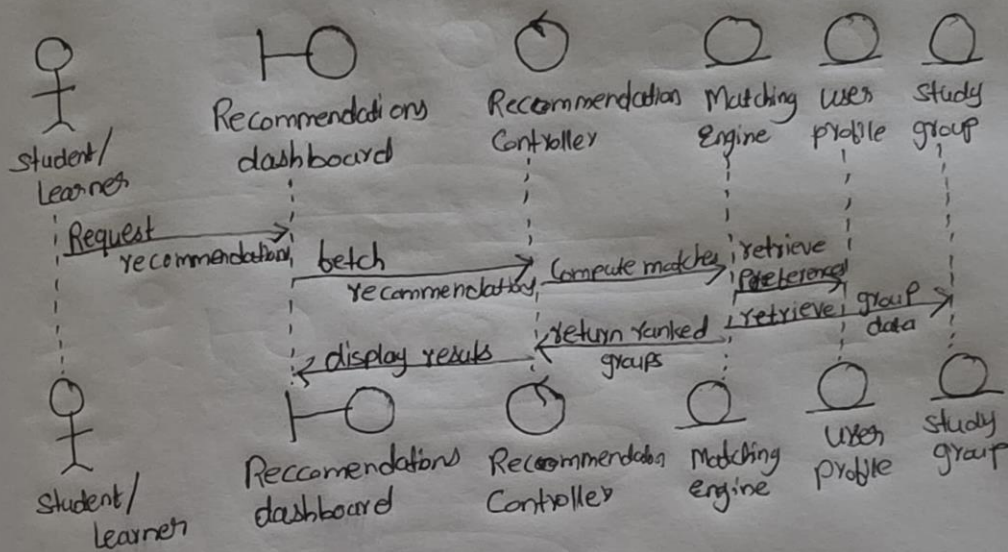 Student/
Learner
Recommendations
dashboard
Recommendation
Controller
Matching
Engine
User
profile
Study
group
Request
recommendation
fetch
recommendation
Compute matches
retrieve
preference
retrieve group
data
return ranked
groups
display results
Student/
Learner
Reccomendations
dashboard
Recommendation
Controller
Matching
engine
User
profile
Study
group